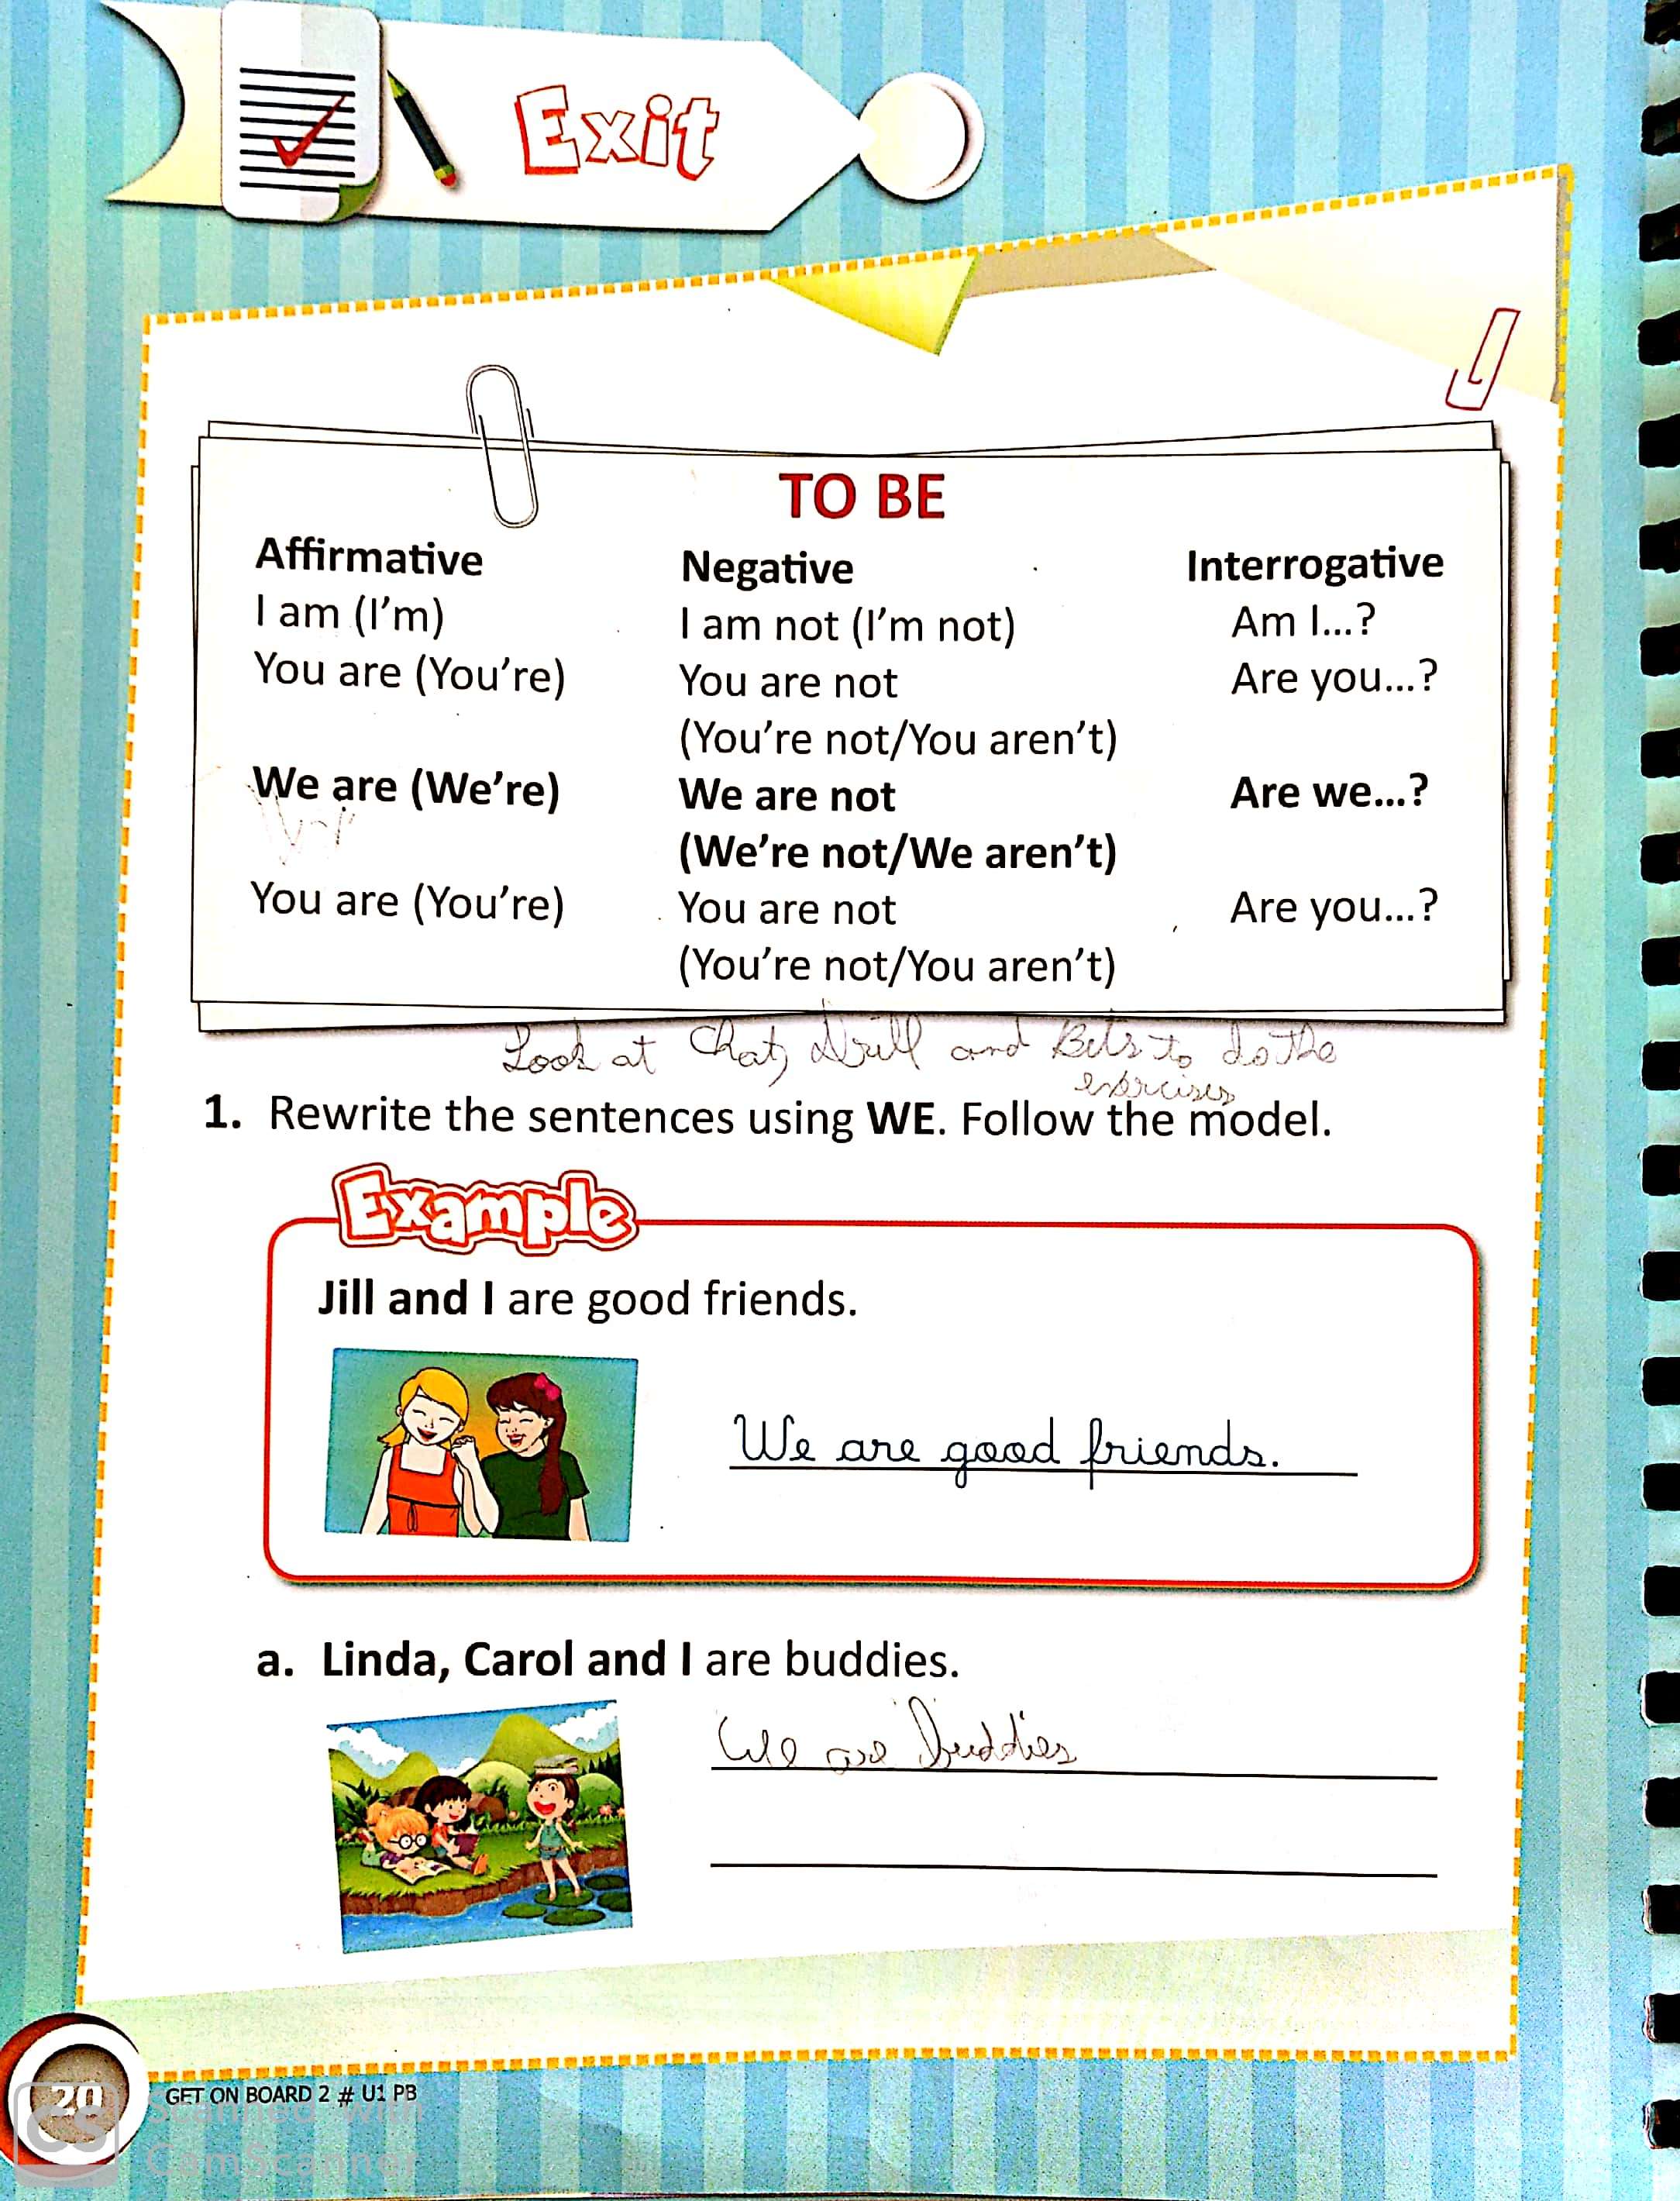 Exit
TO BE
Affirmative Negative Interrogative
I am (I'm) I am not (I'm not) Am I...?
You are (You're) You are not Are you...?
(You're not/You aren't)
We are (We're) We are not Are we...?
(We're not/We aren't)
You are (You're) You are not Are you...?
(You're not/You aren't)
Look at Chat, Drill and Bits to do the
exercises
1. Rewrite the sentences using WE. Follow the model.
Example
Jill and I are good friends.
We are good friends.
a. Linda, Carol and I are buddies.
We are buddies
20
GET ON BOARD 2 # U1 PB
CS
Scanned with
CamScanner